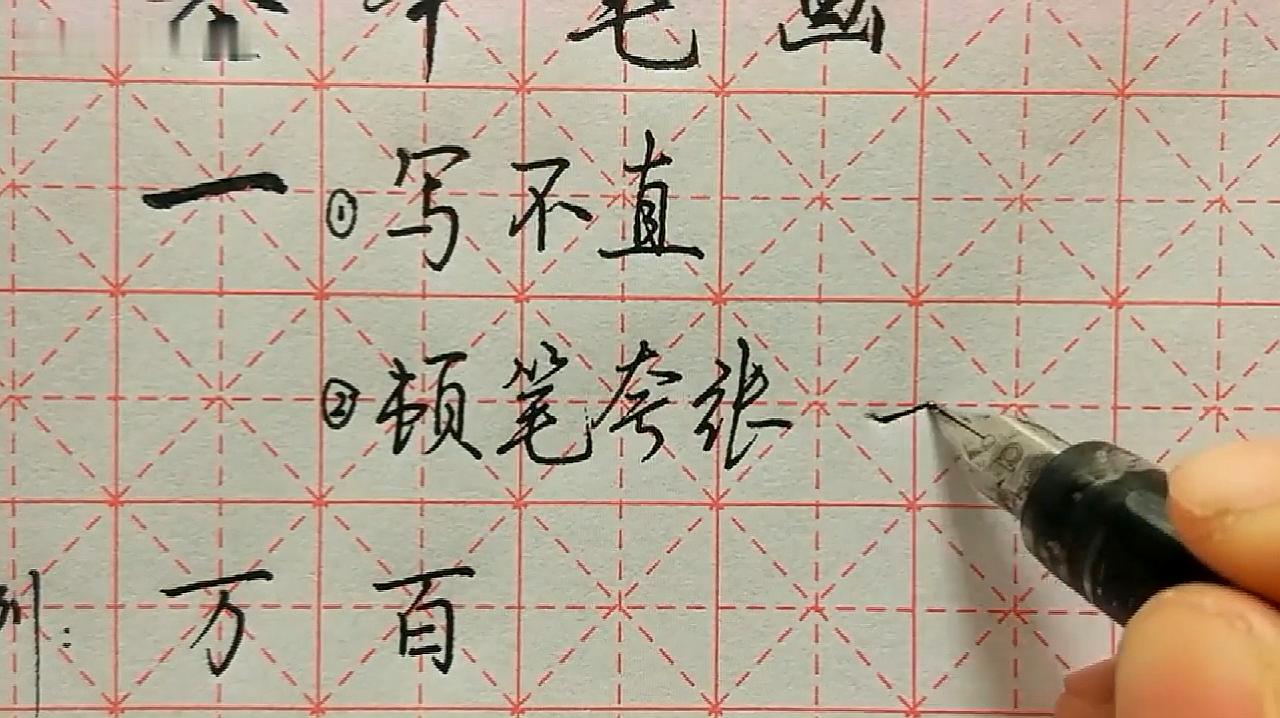 基本笔画
一 ①写不直
②顿笔夸张 一
例：万 百